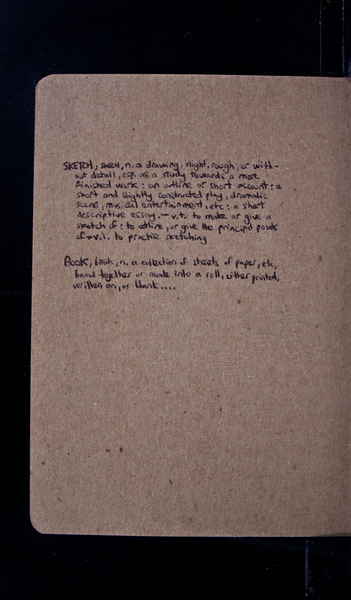 SKETCH, skech, n. a drawing, night. rough, or with-
out detail, esp. as a study towards a more
finished work: an outline or short account: a
short and slightly constructed play, dramatic
scene, musical entertainment, etc: a short
descriptive essay. - v.t. to make or give a
sketch of: to outline, or give the principal points
of - v.i. to practise sketching
BOOK, book, n. a collection of sheets of paper, etc,
bound together or made into a roll, either printed,
written on, or blank....